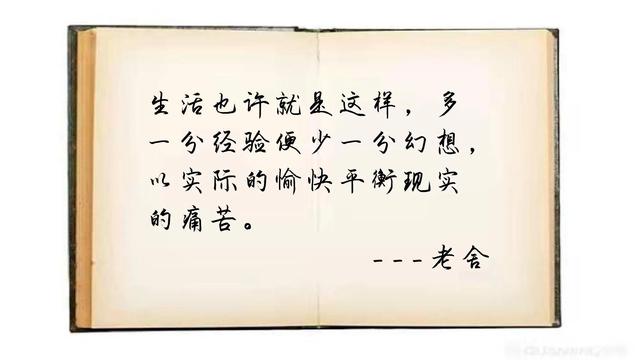 生活也许就是这样，多
一分经验便少一分幻想，
以实际的愉快平衡现实
的痛苦。
---老舍